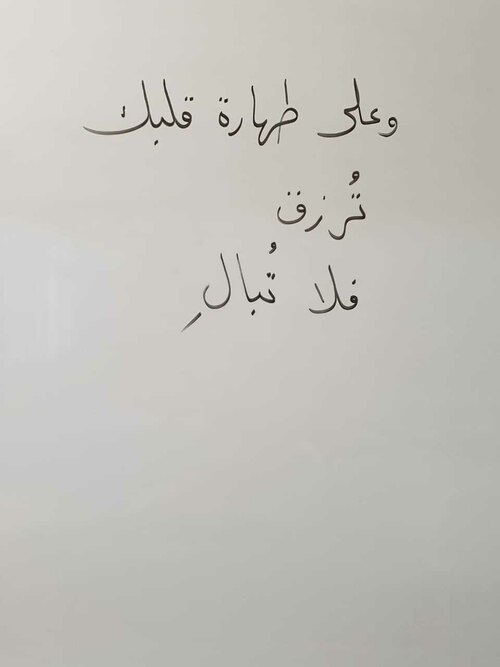 وعلى طهارة قلبك
تُرزق
فلا تُبالِ